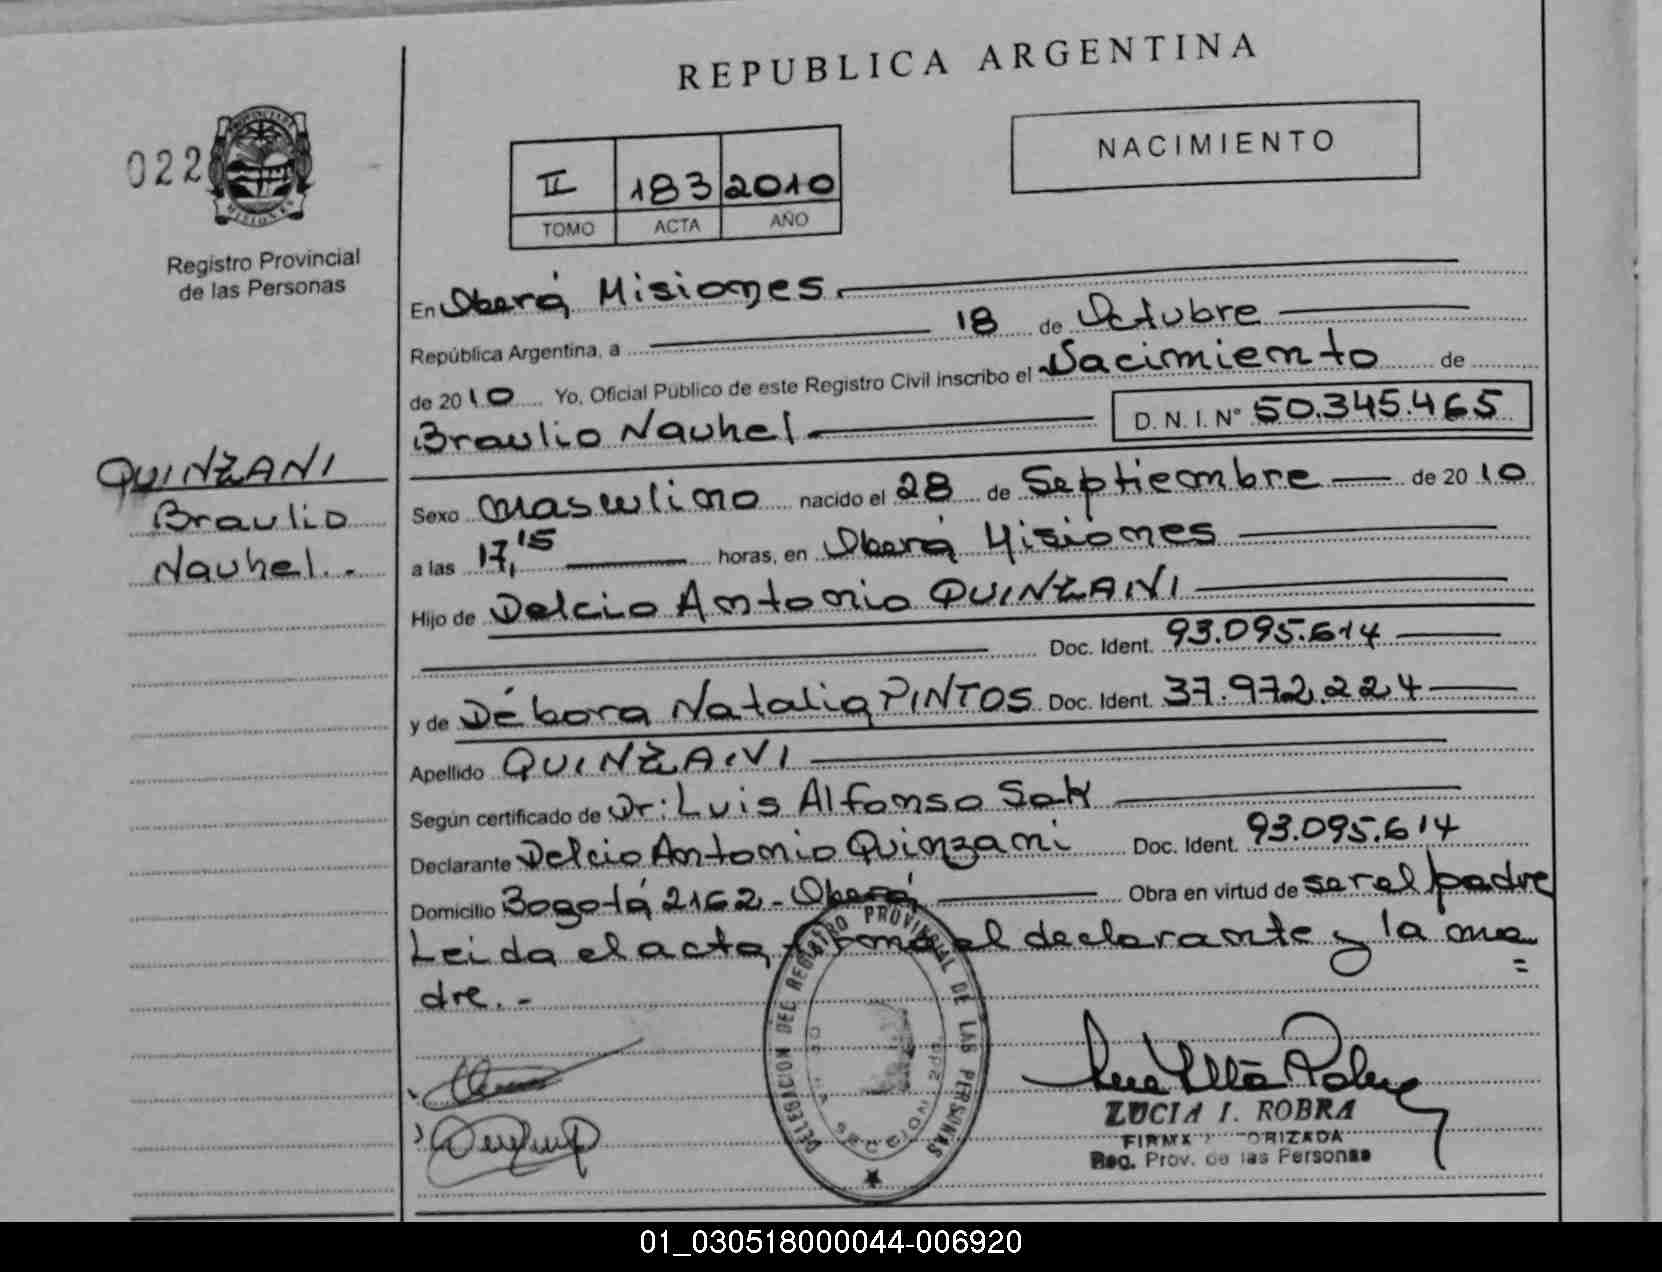 REPUBLICA ARGENTINA
NACIMIENTO
022
PROVINCIA DE
MISIONES
Registro Provincial
de las Personas
II 183 2010
TOMO ACTA AÑO
En Oberá Misiones
República Argentina, a 18 de Octubre
de 2010 Yo, Oficial Público de este Registro Civil inscribo el Nacimiento de
Braulio Nauhel D. N. I. N° 50.345.465
QUINZANI
Braulio
Nauhel.-
Sexo masculino nacido el 28 de Septiembre de 2010
a las 17,15 horas, en Oberá Misiones
Hijo de Delcio Antonio QUINZANI
Doc. Ident. 93.095.614
y de Débora Natalia PINTOS Doc. Ident. 37.972.224
Apellido QUINZANI
Según certificado de Dr: Luis Alfonso
Declarante Delcio Antonio Quinzani Doc. Ident. 93.095.614
Domicilio Bogotá 2162 - Oberá Obra en virtud de ser el padre
Leida el acta, firma el declarante y la ma
=
dre.-
DELEGACION DEL REGISTRO PROVINCIAL DE LAS PERSONAS
LUCIA I. ROBRA
FIRMA AUTORIZADA
Reg. Prov. de las Personas
01_030518000044-006920